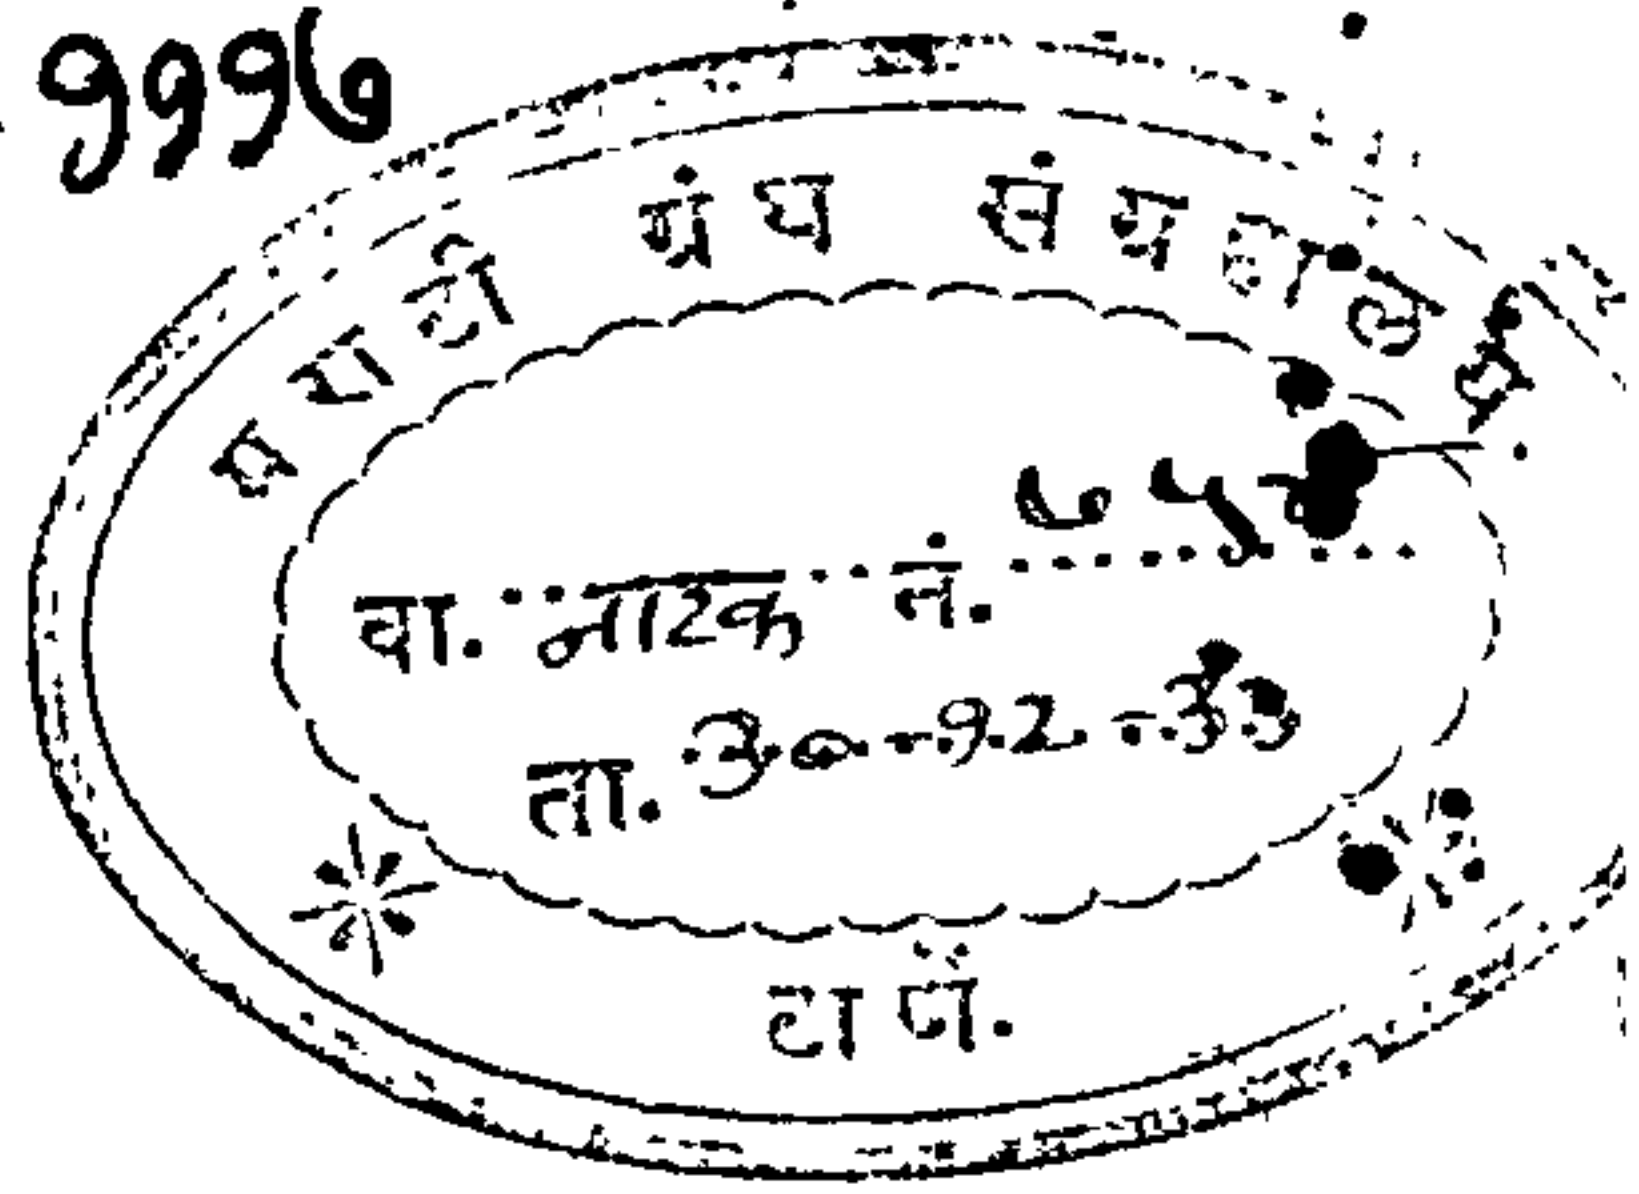 १११७
मराठी ग्रंथ संग्रहालय
वा. नाटक नं.
ता. ३०-१२-३३
ठाणें.